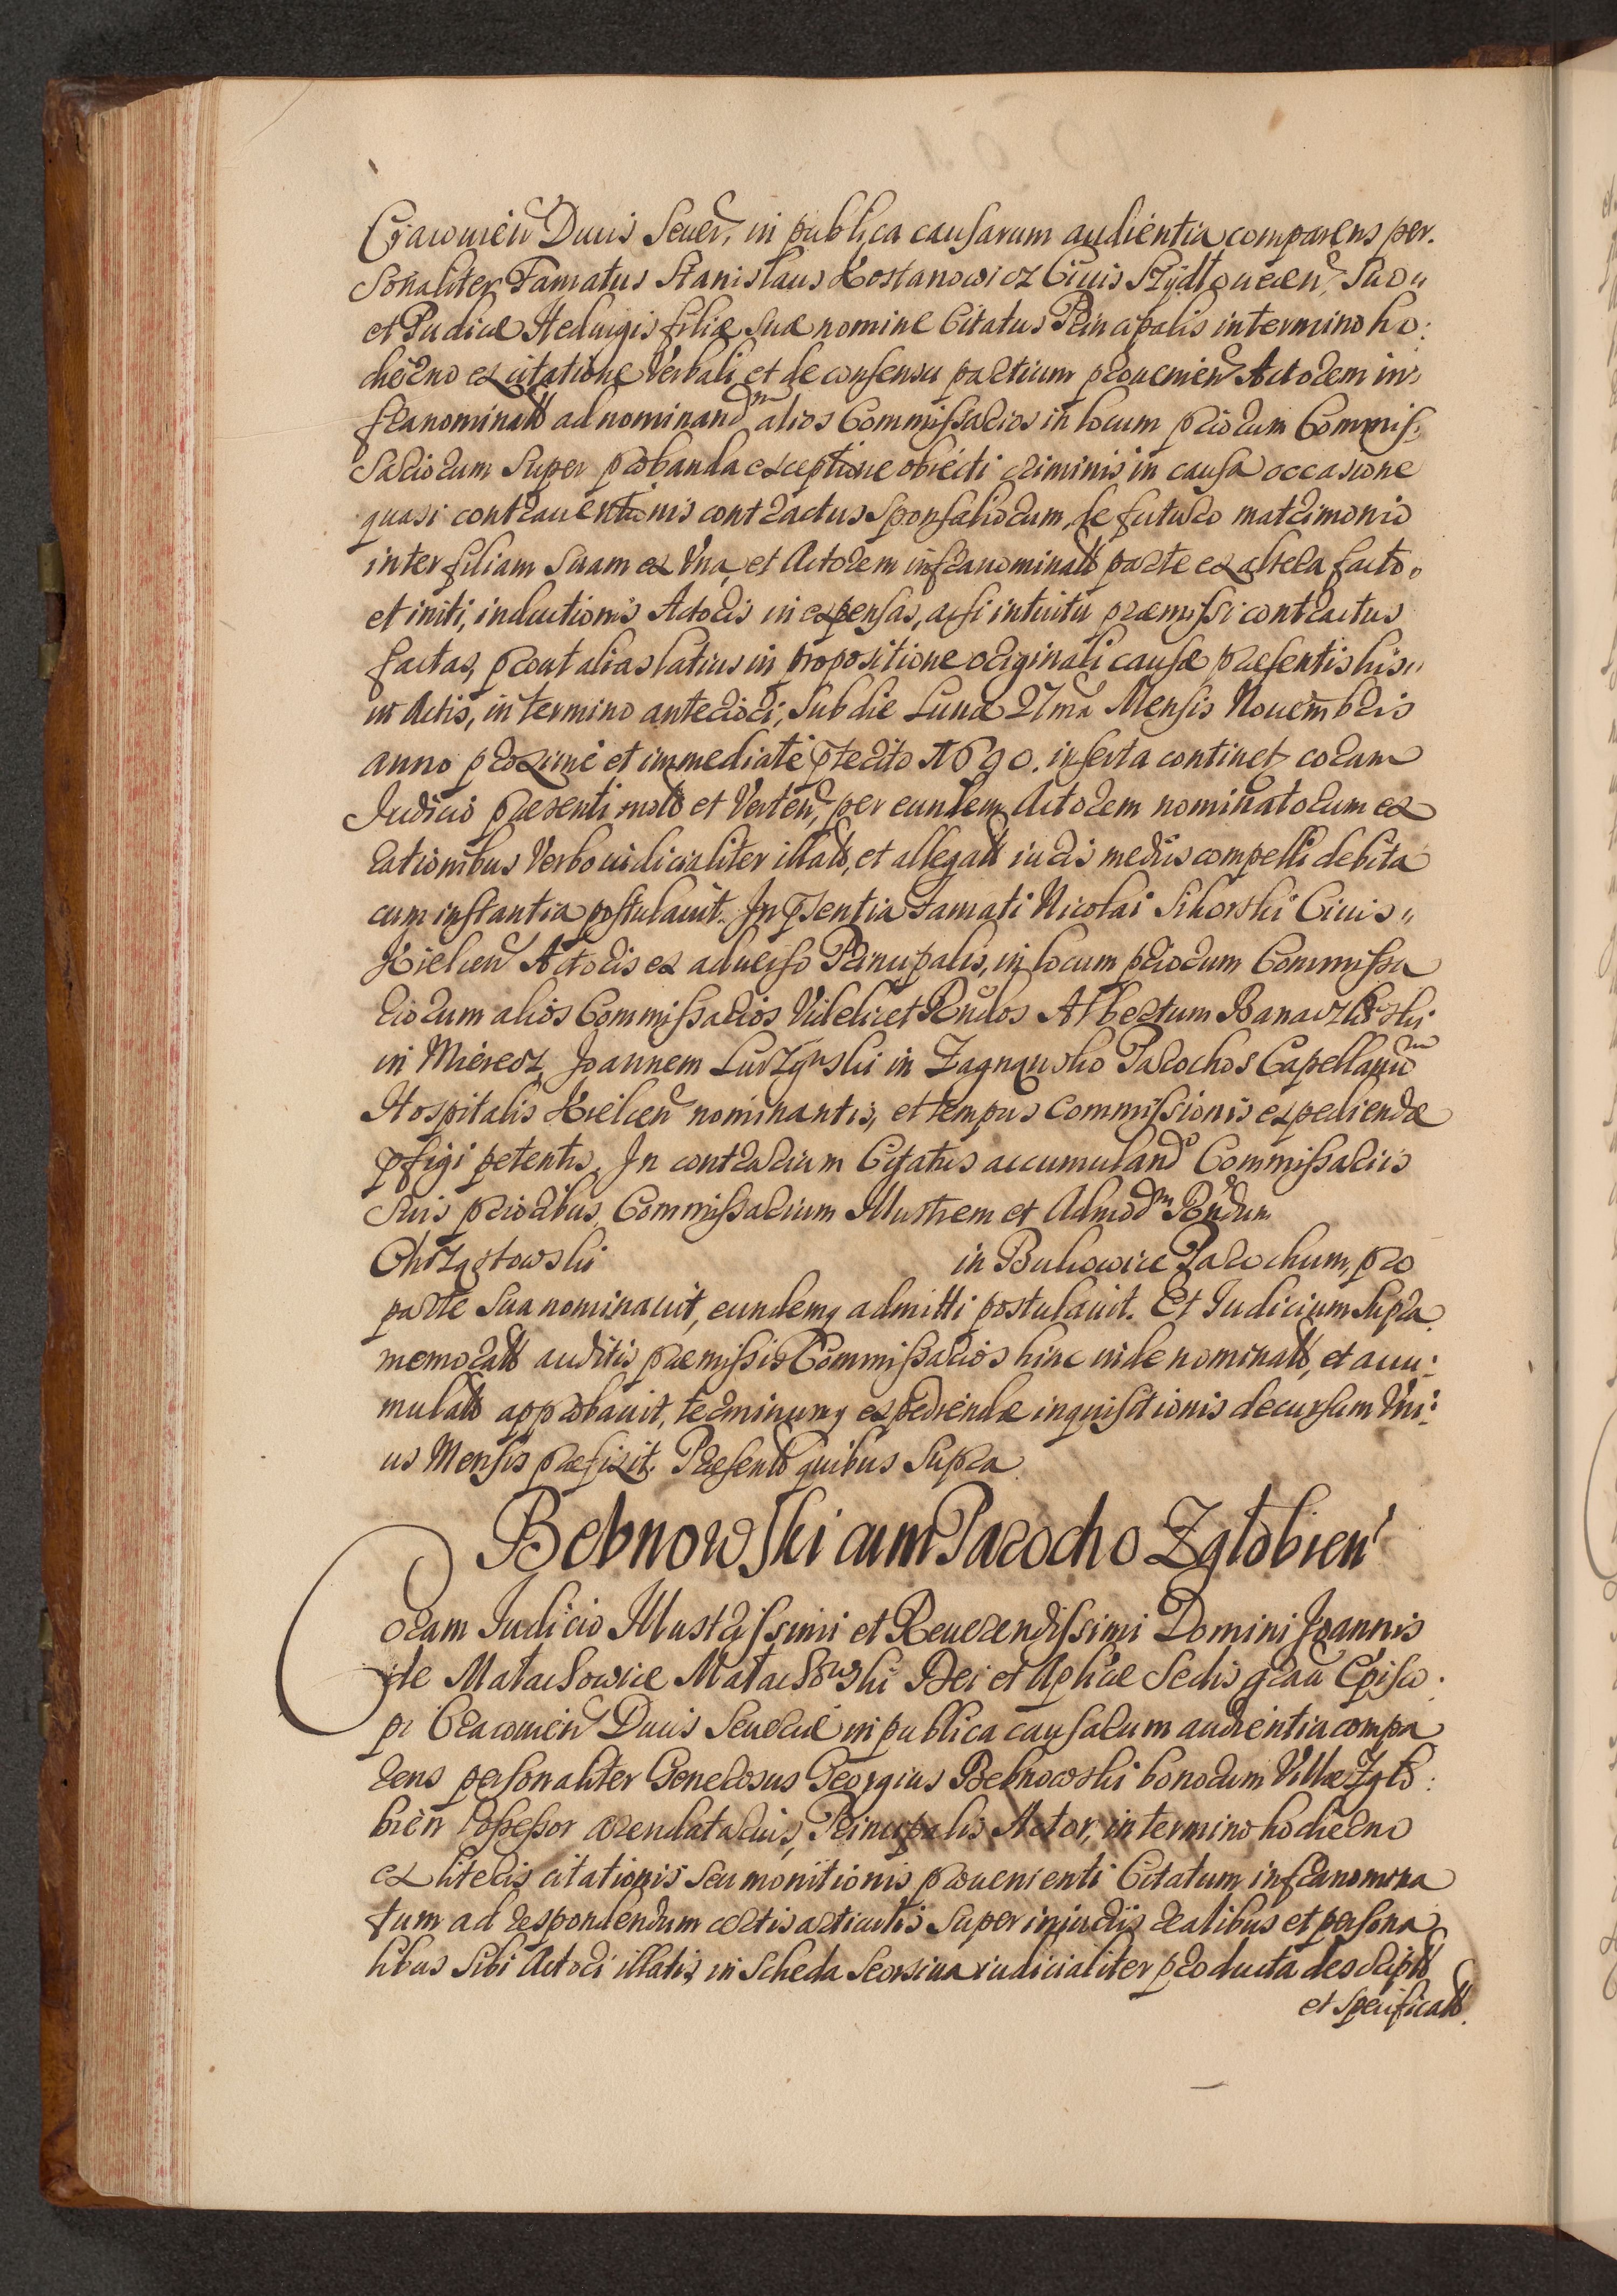 Cracovien Ducis Sever, in publica causarum audientia comparens per.
sonaliter Famatus Stanislaus Kostanowicz Civis Szydloviecen, suo
et Pudicæ Hedvigis filiæ suæ nomine Citatus Principalis in termino ho:
dierno ex citatione Verbali et de consensu partium provenien Actorem in
franominatt ad nominandm alios Commissarios in locum priorum Commis:
sariorum super probanda exceptione obiecti criminis in causa occasione
quasi contraventionis contractus sponsaliorum, de futuro matrimonio
inter filiam suam ex Una, et Actorem infranominatt parte ex altera facto
et initi, inductionis Actoris in expensas, acsi intuitu præmissi contractus
factas, prout alias latius in propositione originali causæ præsentis his
in Actis, in termino anteriori, sub die Lunæ 27ma Mensis Novembris
anno proxime et immediate pterito 1690. inserta continet, coram
Iudicio præsenti mott et Verten, per eundem Actorem nominatorum ex
rationibus Verbo iudicialiter illatt, et allegatt iuris mediis compelli debita
cum instantia postulavit. In psentia Famati Nicolai Sikorski Civis
Kielcen Actoris ex adverso Principalis, in locum priorum Commissa
riorum alios Commissarios Videlicet Rndos Albertum Banaczkowski
in Mierecz, Joannem Lurzynski in Zagnansko Parochos Capellanum
Hospitalis Kielcen nominantis, et tempus Commissionis expediendæ
pfigi petentis. In contrarium Citatus accumulando Commissariis
suis prioribus, Commissarium Illustrem et Admodm Rndum
Chrząstowski in Bukowice Parochum, pro
parte sua nominavit, eundemq admitti postulavit. Et Iudicium supra
memoratt auditis præmissis Commissarios hinc inde nominatt, et accu:
mulatt approbavit, terminumq expediendæ inquisitionis decursum Uni:
us Mensis præfixit. Præsentt quibus supra.
Bebnowski cum Parocho Zglobien
Coram Iudicio Illustrissimi et Reverendissimi Domini Joannis
de Małachowice Małachowski Dei et Aplicæ Sedis gratia Episco.
pi Cracovien Ducis Severiæ in publica causarum audientia compa
rens personaliter Generosus Georgius Bebnowski bonorum Villæ Zglo:
bien Possessor arendatarius, Principalis Actor, in termino hodierno
ex literis citationis seu monitionis provenienti Citatum infranomina
tum ad respondendum certis articulis super iniuriis realibus et persona
libus sibi Actori illatis, in scheda seorsiva iudicialiter producta descriptt
et specificatt.